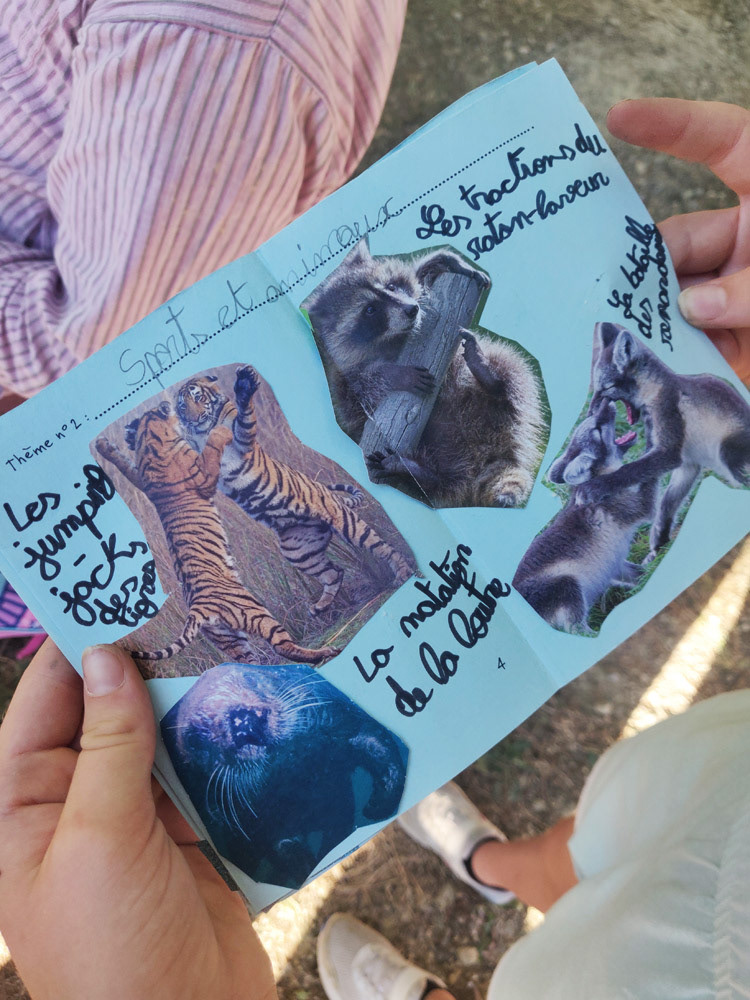 Thème n°2 : Sports et animaux
Les
jumping
-
jacks
des
tigres
Les tractions du
raton-laveur
La bataille
des
renards
La natation
de la loutre
4